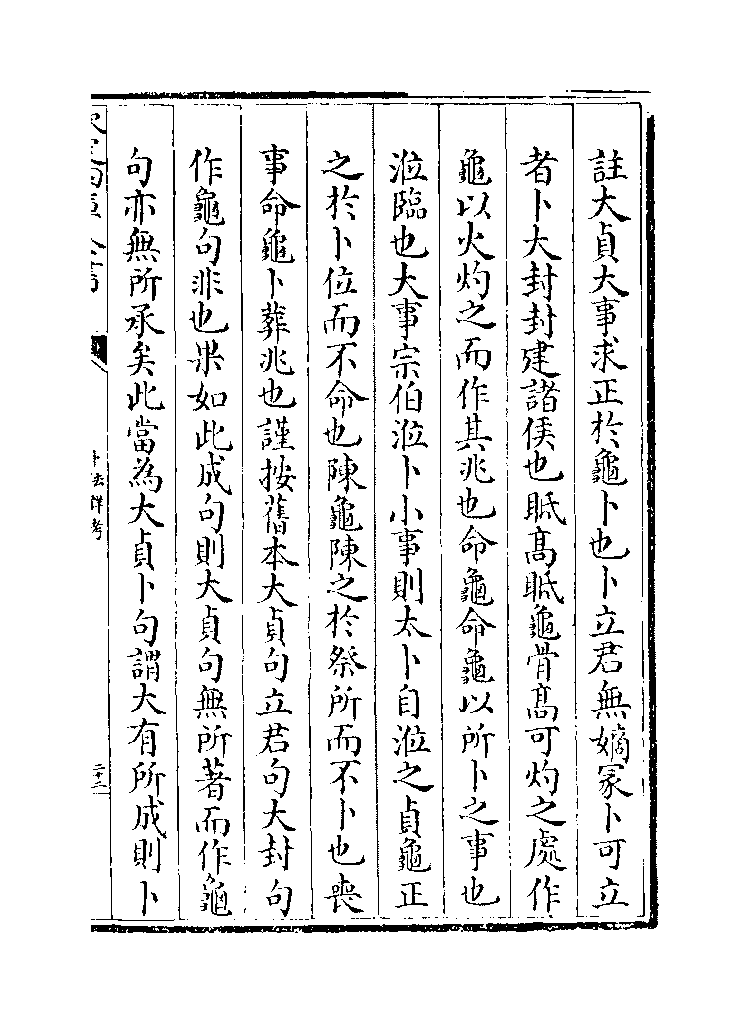 註大貞大事求正於龜卜也卜立君無嫡冡卜可立
者卜大封封建諸侯也眂髙眂龜骨髙可灼之處作
龜以火灼之而作其兆也命龜命龜以所卜之事也
涖臨也大事宗伯涖卜小事則太卜自涖之貞龜正
之於卜位而不命也陳龜陳之於祭所而不卜也喪
事命龜卜葬兆也謹按舊本大貞句立君句大封句
作龜句非也果如此成句則大貞句無所著而作龜
句亦無所承矣此當為大貞卜句謂大有所成則卜
二十二